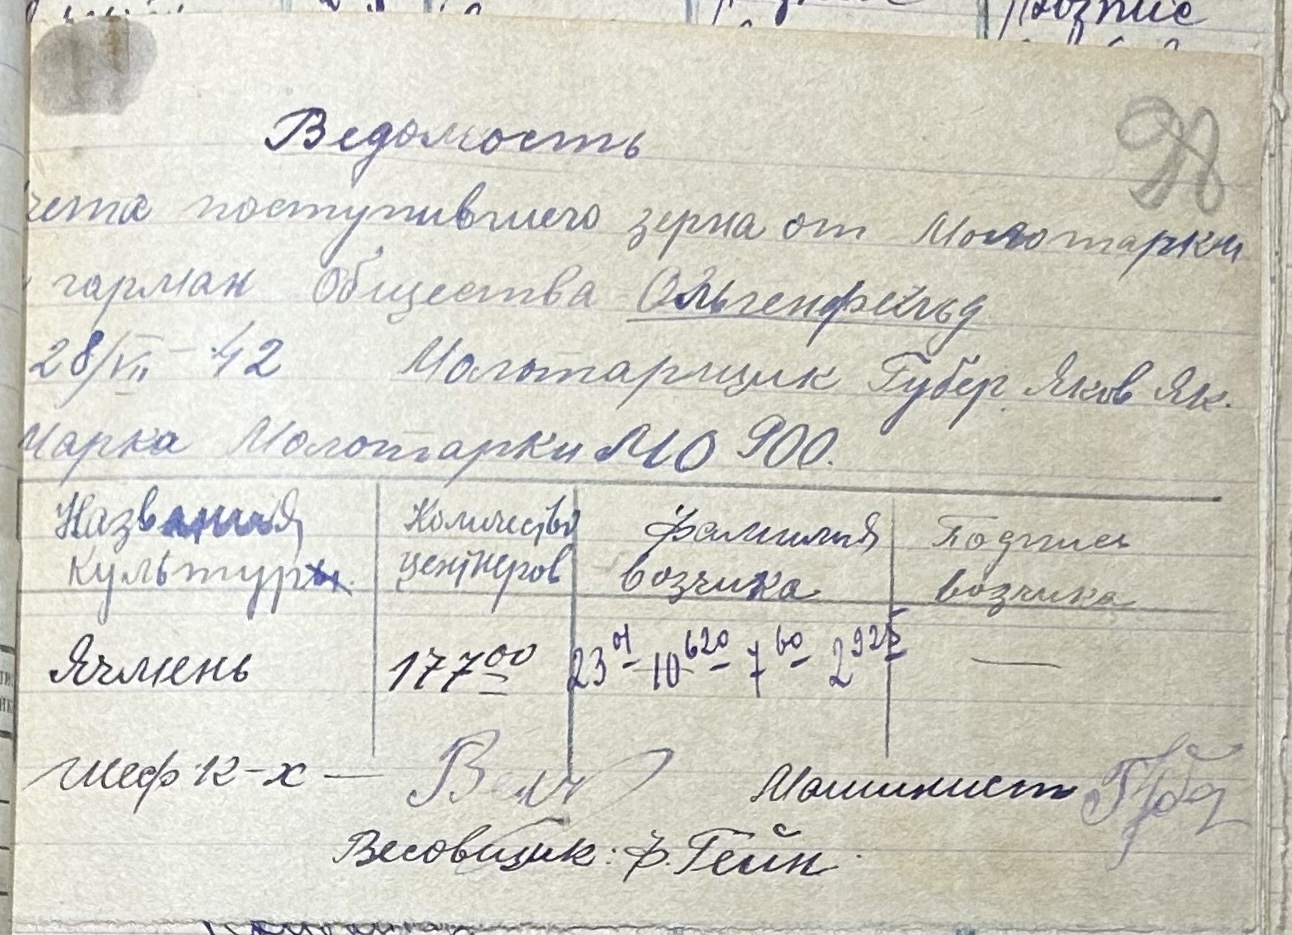 Ведомость
чета поступившего зерна от Молотарки
гарман Общества Ольгенфельд
28/VII - 42 Молотарщик Губер Яков Як.
Марка Молотарки МО 900.
Названия Количество фамилия Подпись
культуры. центнеров возчика возчика
Ячмень 177 00 23 01 - 10 620 - 7 60 - 2 925 —
шеф к-х — Машинист
Весовщик: Ф. Гейн